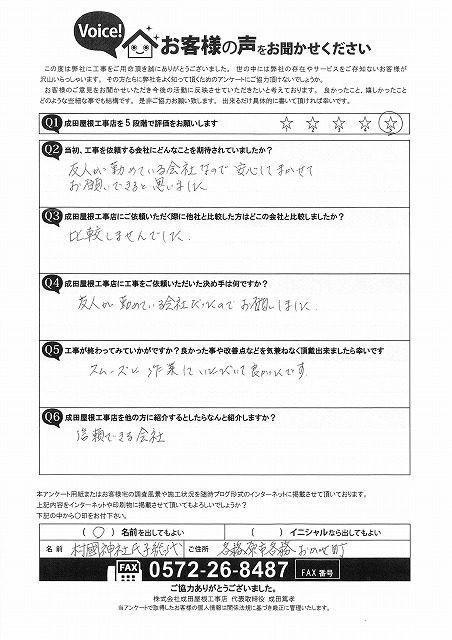 Voice!
お客様の声をお聞かせください
この度は弊社に工事をご用命頂き誠にありがとうございました。 世の中には弊社の存在やサービスをご存知ないお客様が
沢山いらっしゃいます。 その方たちに弊社をよく知って頂くためのアンケートにご協力頂けないでしょうか。
お客様のご意見をお聞かせいただき今後の活動に反映させていただきたいと考えております。 良かったこと、嬉しかったこと
どのような些細な事でも結構です。 是非ご協力お願い致します。 出来るだけ具体的に書いて頂ければ幸いです。
Q1 成田屋根工事店を5段階で評価をお願いします ☆ ☆ ☆ ☆ ☆
Q2 当初、工事を依頼する会社にどんなことを期待されていましたか?
友人が勤めている会社なので安心してまかせて
お願いできると思いました
Q3 成田屋根工事店にご依頼いただく際に他社と比較した方はどこの会社と比較しましたか?
比較しませんでした.
Q4 成田屋根工事店に工事をご依頼いただいた決め手は何ですか?
友人が勤めている会社だったのでお願いしました.
Q5 工事が終わってみていかがですか?良かった事や改善点などを気兼ねなく頂戴出来ましたら幸いです
スムーズに作業していただいて良かったです.
Q6 成田屋根工事店を他の方に紹介するとしたらなんと紹介しますか?
信頼できる会社
本アンケート用紙またはお客様宅の調査風景や施工状況を随時ブログ形式のインターネットに掲載させて頂いております。
上記内容をインターネットや印刷物に掲載させて頂いてもよろしいでしょうか?
下記の中から〇印をお付下さい。
( 〇 ) 名前を出してもよい ( ) イニシャルなら出してもよい
名 前 村國神社氏子総代 ご住所 各務原市各務おがせ町
FAX 0572-26-8487 FAX 番号
ご協力ありがとうございました。
株式会社成田屋根工事店 代表取締役 成田篤孝
※アンケートで取得したお客様の個人情報は関係法規に基づき厳正に管理いたします。